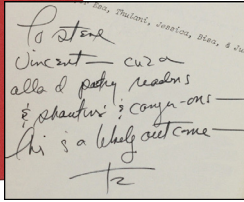 Esa, Thulani, Jessica, Bisa, & Ju
To steve
Vincent — cuz a
all a d poetry readins
& shautins' & conyer-ons —
this is a likely outcome —